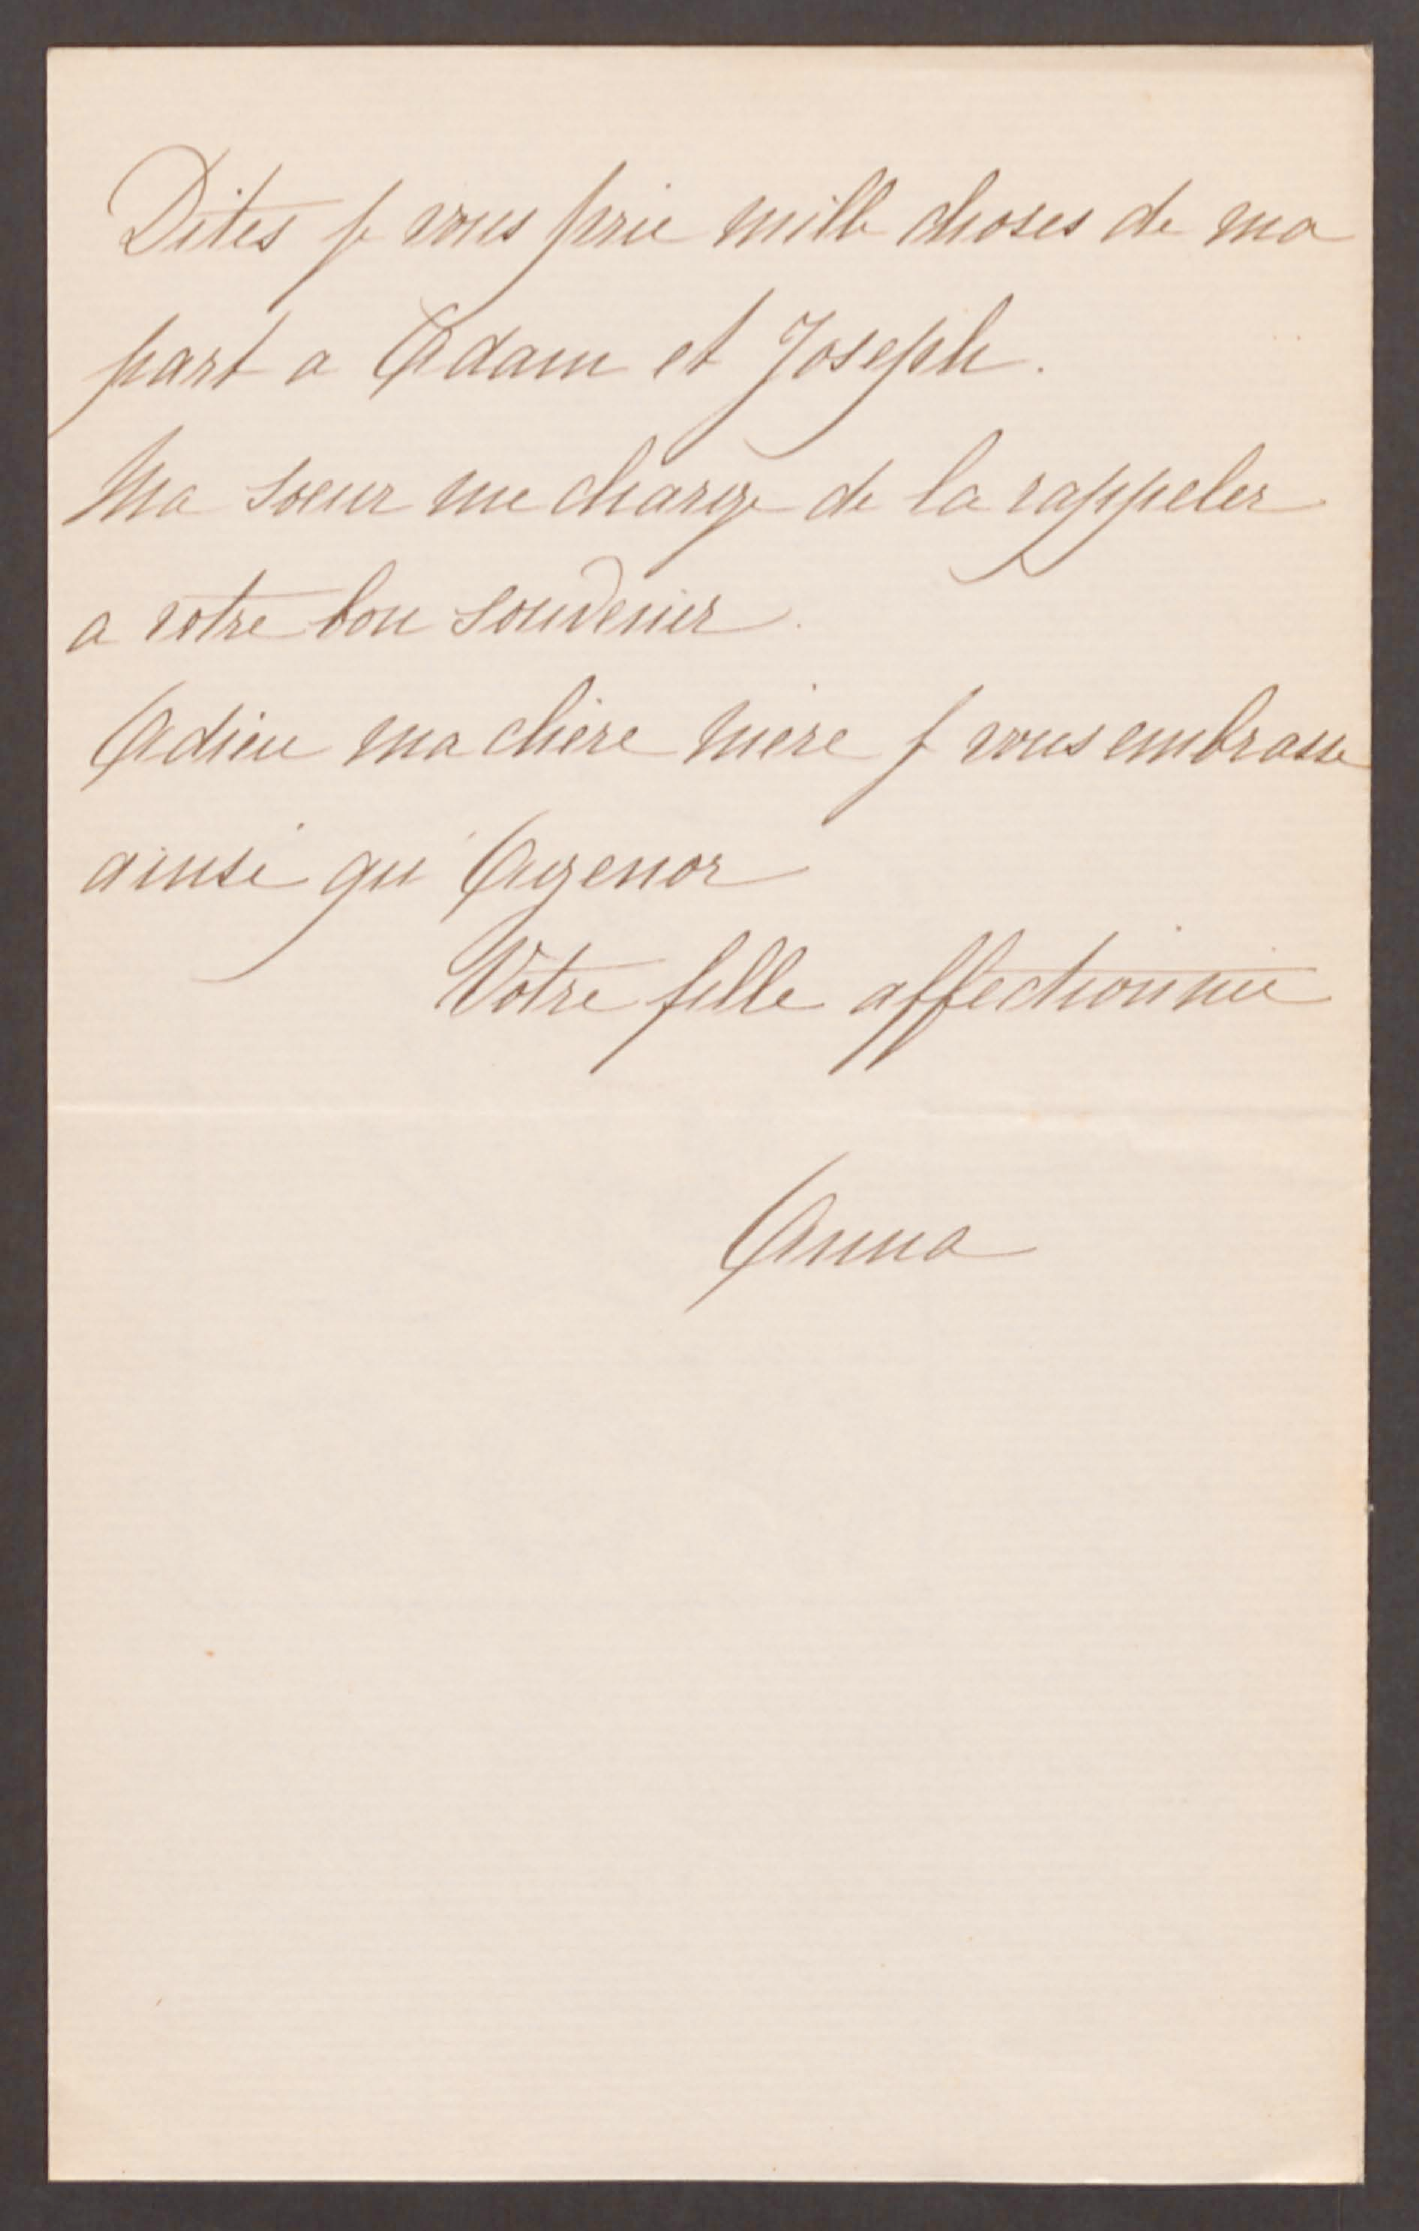 Dites je vous prie mille choses de ma
part a Adam et Joseph.
Ma soeur me charge de la rappeler
a votre bon souvenir.
Adieu ma chère mère je vous embrasse
ainsi qu'Agenor
Votre fille affectionnée
Anna